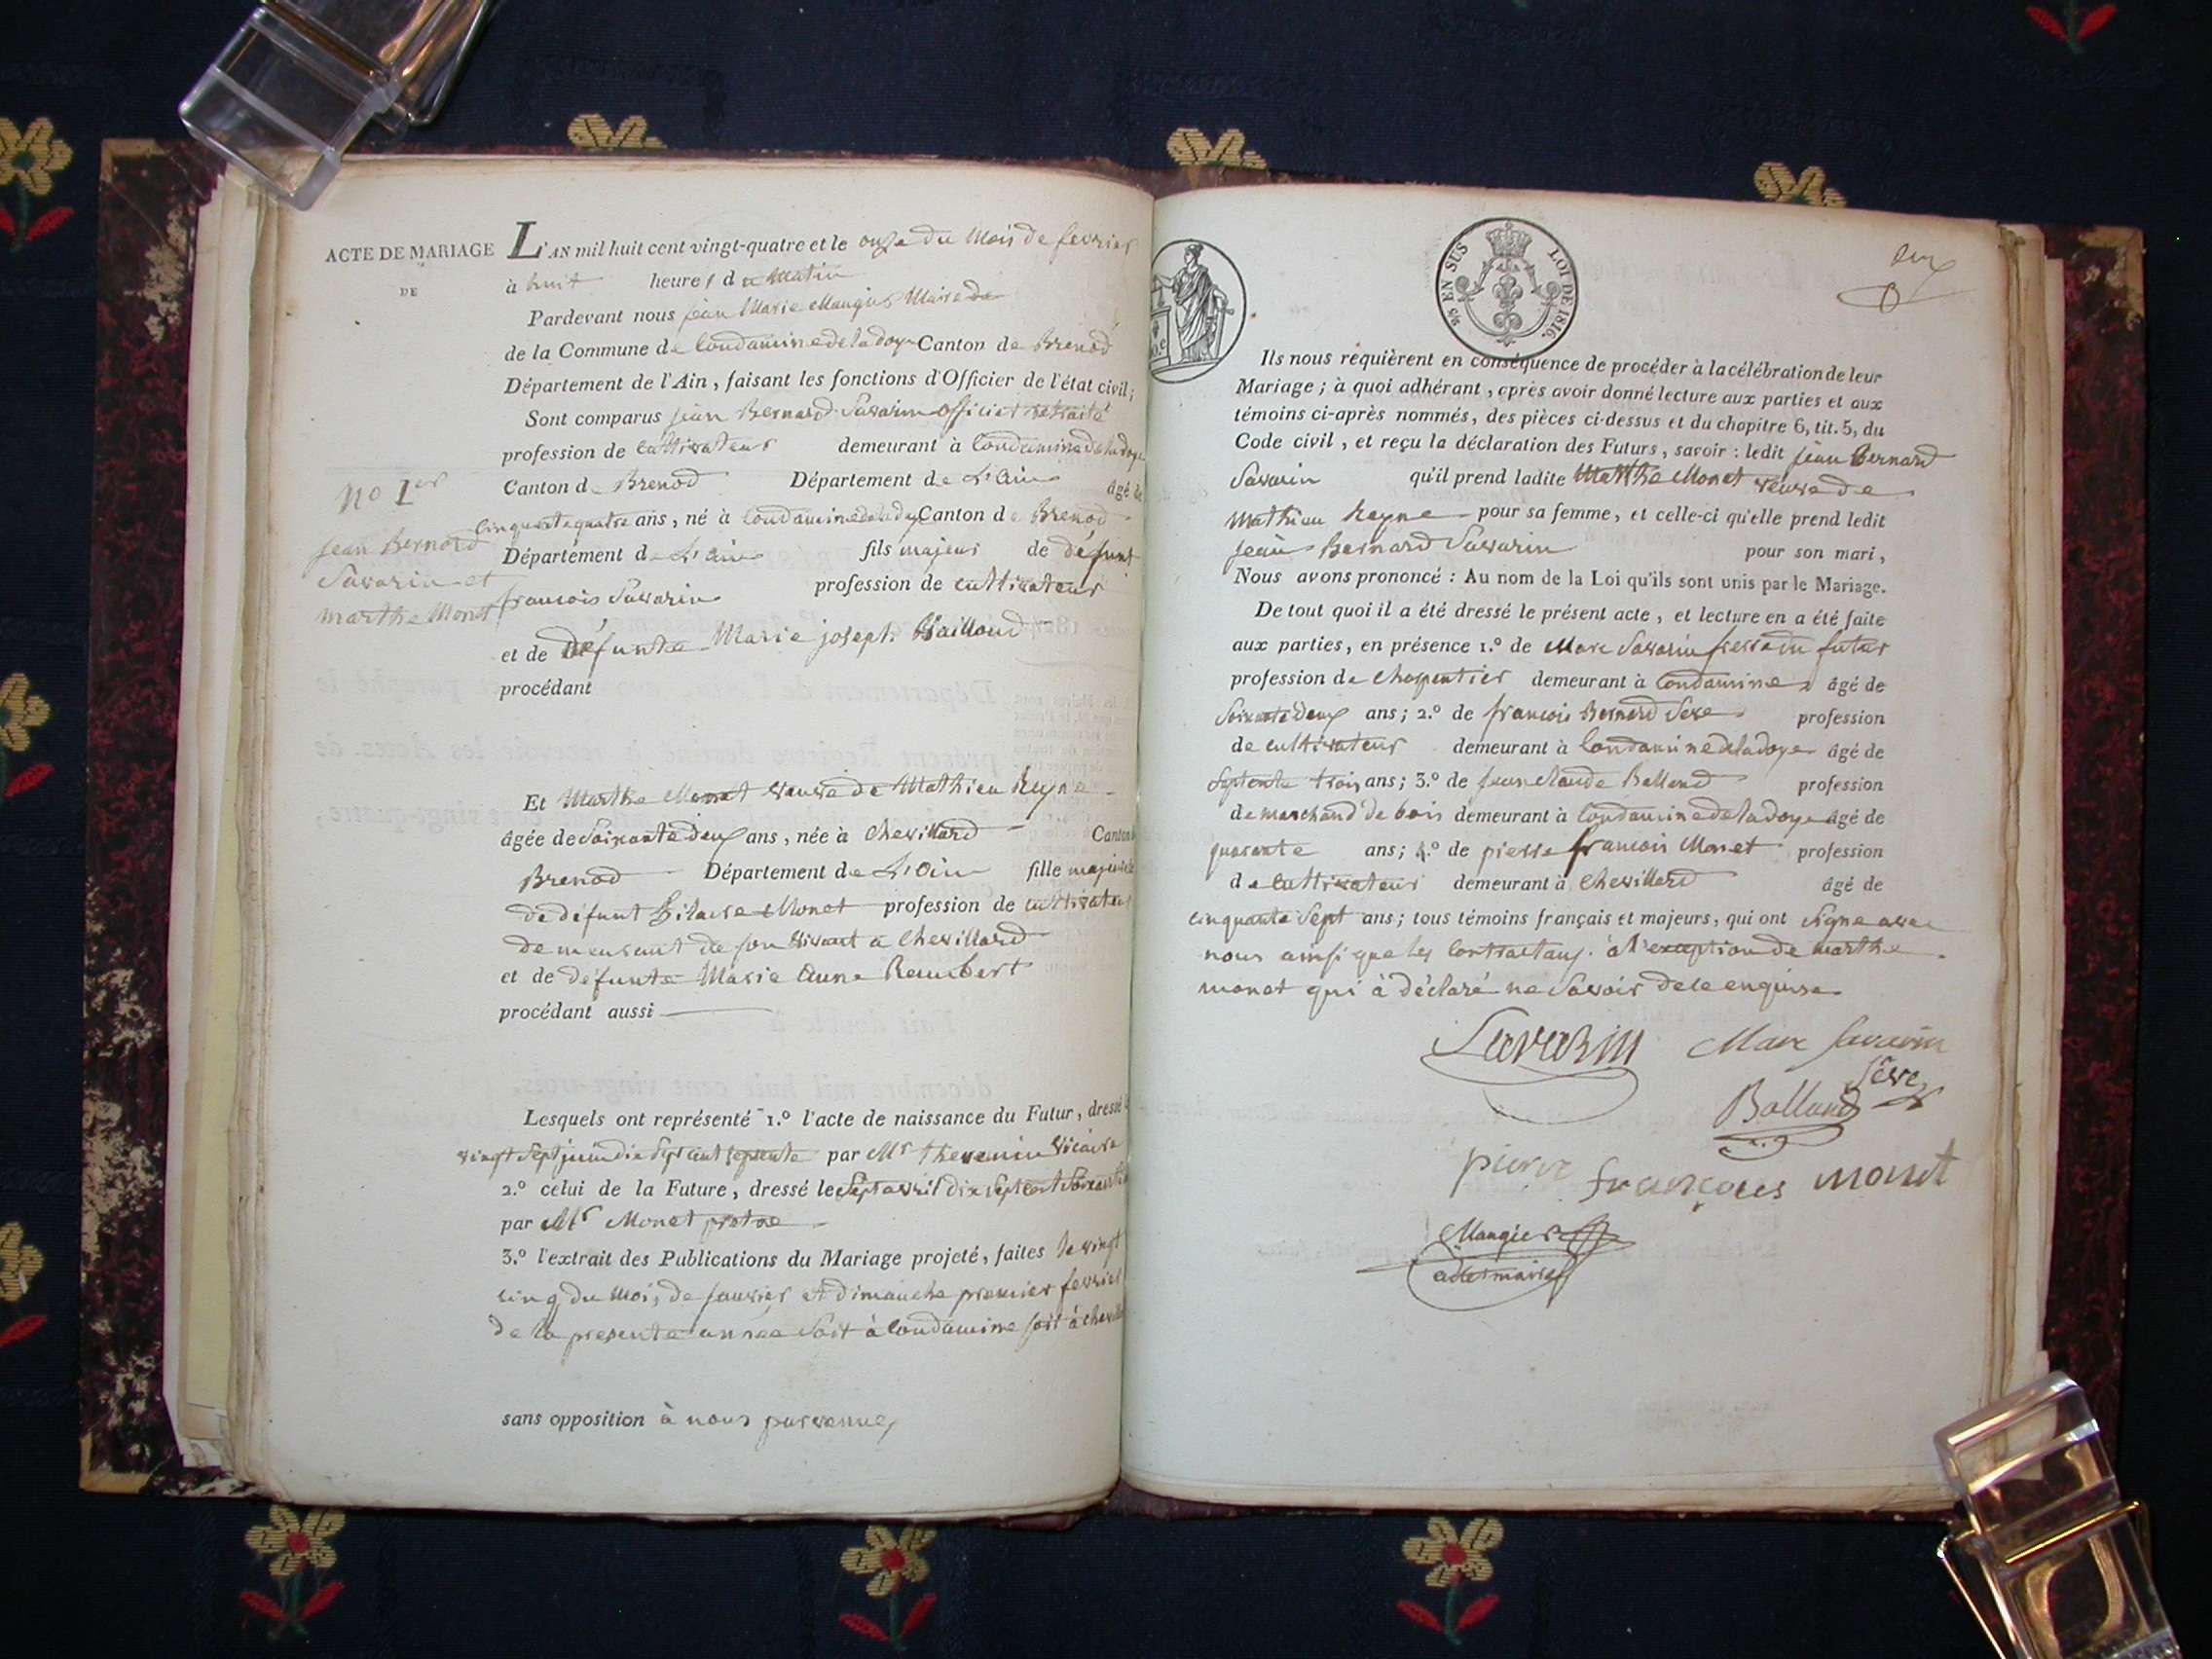 ACTE DE MARIAGE
DE
L'AN mil huit cent vingt-quatre et le onze du Mois de fevrier
à huit heures du Matin
Pardevant nous jean Marie Maugier Maire de
de la Commune de Condamine de la doye Canton de Brenod
Département de l'Ain, faisant les fonctions d'Officier de l'état civil;
Sont comparus jean Bernard Savarin officier retraité
profession de cultivateur demeurant à Condamine de la doye
Canton de Brenod Département de L'ain âgé de
Cinquante quatre ans, né à Condamine de la doye Canton de Brenod
Département de L'ain fils majeur de défunt
francois Savarin profession de cultivateur
No 1er
jean Bernard
Savarin et
marthe Monet
et de Défunte Marie joseph
procédant
Et Marthe Monet veuve de Mathieu Reyne
âgée de Soixante deux ans, née à Chevillard Canton
Brenod Département de L'ain fille majeure
de défunt hilaire Monet profession de cultivateur
demeurant de son vivant à Chevillard
et de défunte Marie Anne Rambert
procédant aussi
Lesquels ont représenté 1.º l'acte de naissance du Futur, dressé
vingt Sept juin dix Sept cent Septente par Mr thevenin vicaire
2.º celui de la Future, dressé le Sept avril dix Sept cent Soixante
par Mr Monet pretre
3.º l'extrait des Publications du Mariage projeté, faites le vingt
cinq du Mois de janvier et Dimanche premier fevrier
de la presente année Soit à Condamine soit à chevillard
sans opposition à nous parvenue
25 EN SUS LOI DE 1816.
deux
Ils nous requièrent en conséquence de procéder à la célébration de leur
Mariage; à quoi adhérant, après avoir donné lecture aux parties et aux
témoins ci-après nommés, des pièces ci-dessus et du chapitre 6, tit. 5, du
Code civil, et reçu la déclaration des Futurs, savoir: ledit jean Bernard
Savarin qu'il prend ladite Marthe Monet veuve de
Mathieu Reyne pour sa femme, et celle-ci qu'elle prend ledit
jean Bernard Savarin pour son mari,
Nous avons prononcé: Au nom de la Loi qu'ils sont unis par le Mariage.
De tout quoi il a été dressé le présent acte, et lecture en a été faite
aux parties, en présence 1.º de Marc Savarin frere du futur
profession de charpentier demeurant à Condamine âgé de
Soixante deux ans; 2.º de francois Bernard Seve profession
de cultivateur demeurant à Condamine de la doye âgé de
Septente trois ans; 3.º de jean claude Balland profession
de marchand de bois demeurant à Condamine de la doye âgé de
quarante ans; 4.º de pierre francois Monet profession
de cultivateur demeurant à Chevillard âgé de
cinquante Sept ans; tous témoins français et majeurs, qui ont signe avec
nous ainsi que les Contractans à l'exception de marthe
monet qui à déclaré ne Savoir de ce enquise
Savarin Marc Savarin
Seve
Balland
pierre françoies monet
Maugier
adet maire